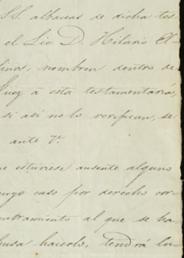 SS. albaceas de dicha tes
el Lic D. Hilario El
nombren dentro de
Juez á esta testamentaría
si así no lo verifican, se
ante V.
estuviese ausente alguno
caso por derecho cor
nombramiento al que se ha
hacerlo, tendrá lo